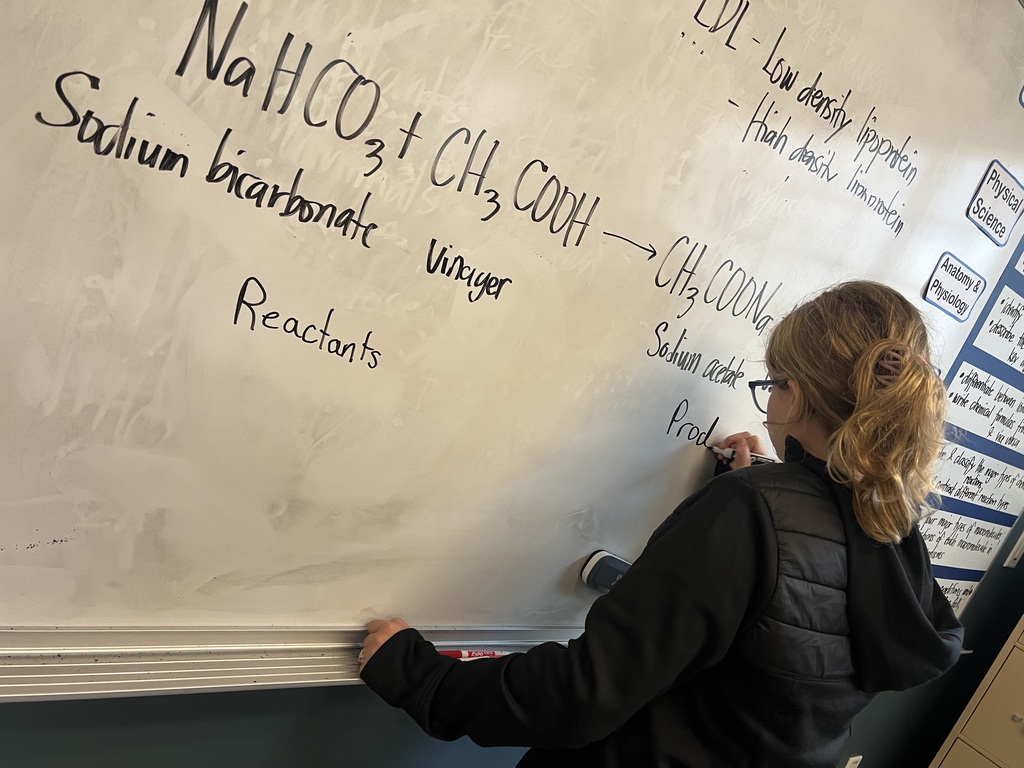 NaHCO3 + CH3COOH → CH3COONa
Sodium bicarbonate Vinager Sodium acetate
Reactants Prod
LDL - Low density lipoprotein
- High density lipoprotein
Physical
Science
Anatomy &
Physiology
• differentiate between
• write chemical formulas
& classify the major types of
reaction
different reaction types
major types of macromolecules
of each macromolecule in